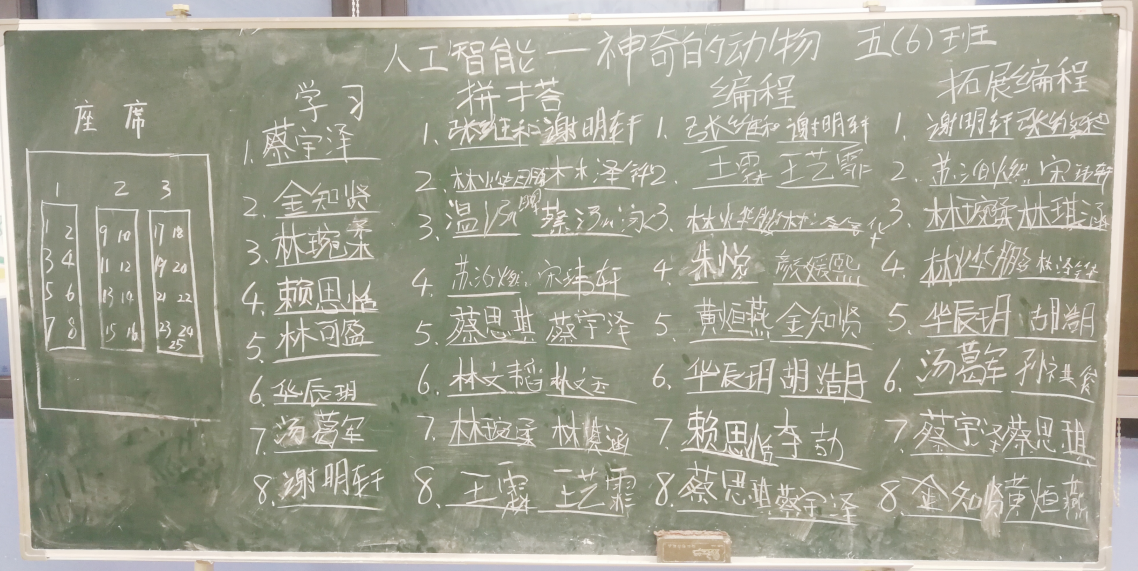 人工智能—神奇的动物 五(6)班
座席
1 2 3
1 2 9 10 17 18
3 4 11 12 19 20
5 6 13 14 21 22
7 8 15 16 23 24
25
学习
1. 蔡宇泽
2. 金知贤
3. 林琬柔
4. 赖思怡
5. 林可盈
6. 华辰玥
7. 汤葛军
8. 谢明轩
拼搭
1. 张维和 谢明轩
2. 林烨鹏 林泽锋
3. 温 蔡汤
4. 苏治燃 宋玮轩
5. 蔡思琪 蔡宇泽
6. 林文韬 林文
7. 林琬柔 林琪涵
8. 王霖 王艺霏
编程
1. 张维和 谢明轩
2. 王霖 王艺霏
3. 林烨鹏 林泽
4. 朱悦 颜媛熙
5. 黄烜燕 金知贤
6. 华辰玥 胡浩月
7. 赖思怡 李勃
8. 蔡思琪 蔡宇泽
拓展编程
1. 谢明轩 张维和
2. 苏治燃 宋玮轩
3. 林琬柔 林琪涵
4. 林烨鹏 林泽锋
5. 华辰玥 胡浩月
6. 汤葛军 孙
7. 蔡宇泽 蔡思琪
8. 金知贤 黄烜燕